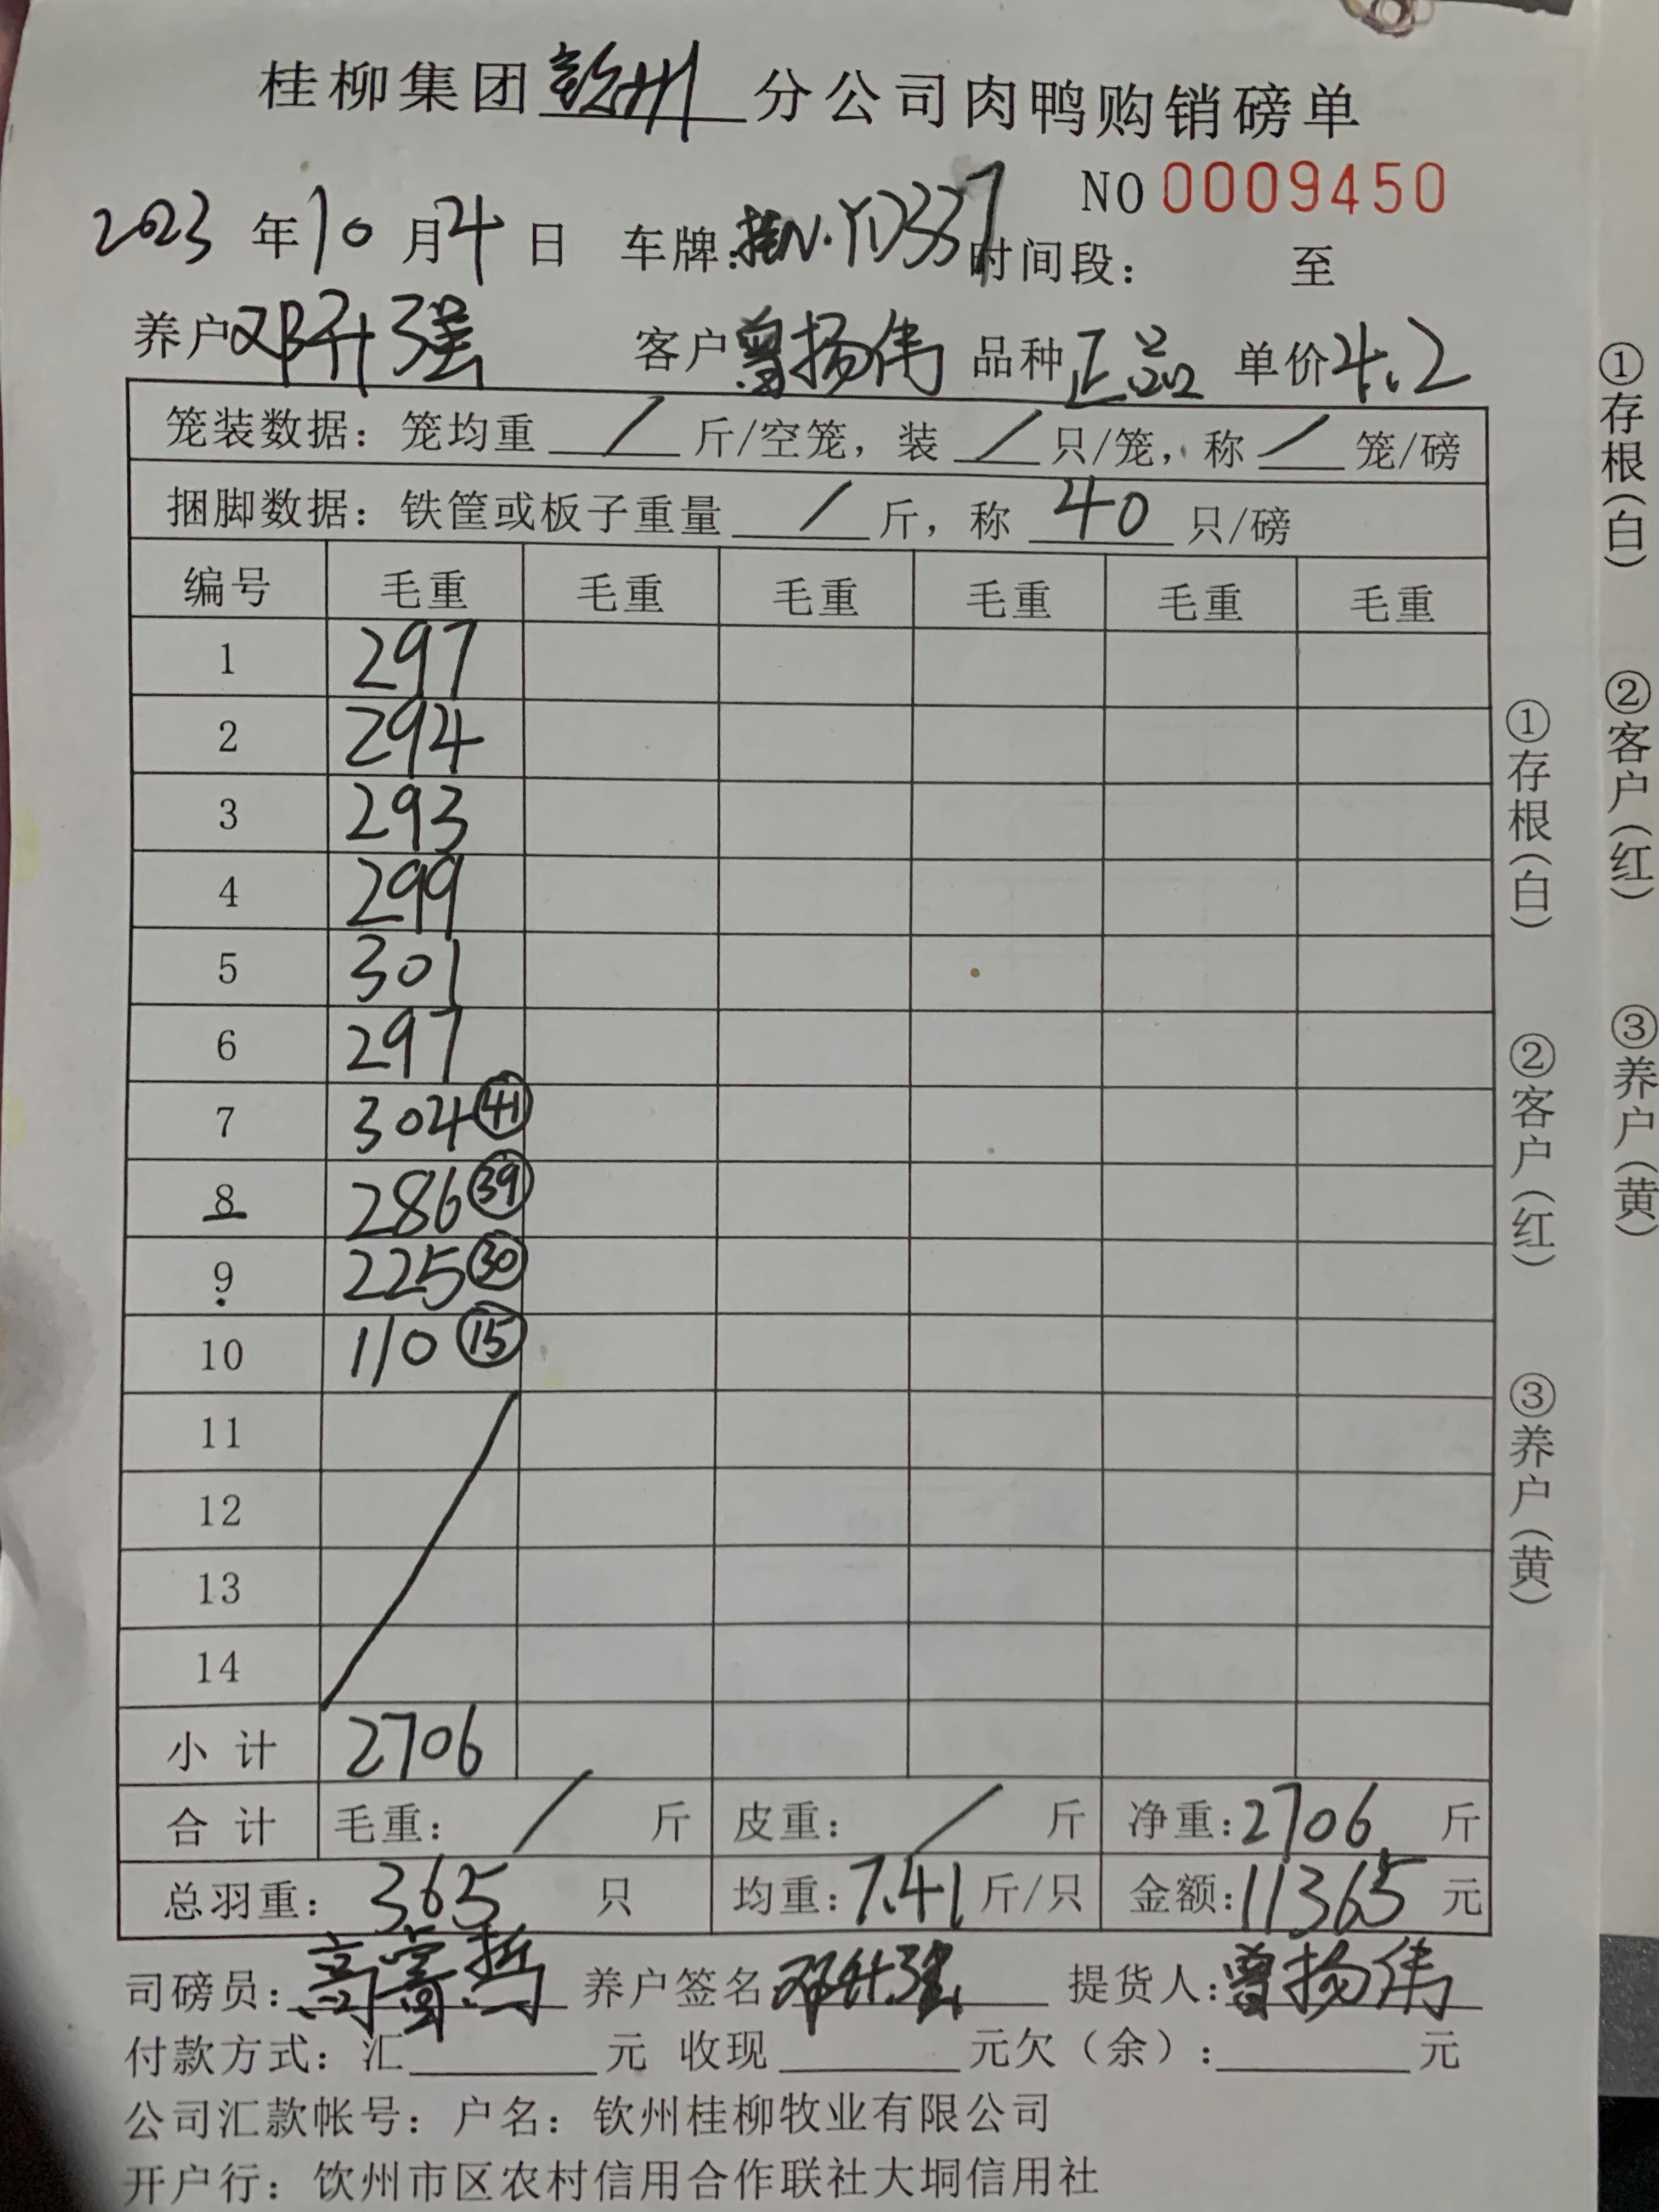 桂柳集团钦州分公司肉鸭购销磅单
NO 0009450
2023年10月4日 车牌:桂N·YD337 时间段: 至
养户邓升强 客户曾扬伟 品种正品 单价4.2
笼装数据: 笼均重 / 斤/空笼, 装 / 只/笼, 称 / 笼/磅
捆脚数据: 铁筐或板子重量 / 斤, 称 40 只/磅
编号 毛重 毛重 毛重 毛重 毛重 毛重
1 297
2 294
3 293
4 299
5 301
6 297
7 304 ㊶
8 286 ㊴
9 225 ㉚
10 110 ⑮
11
12
13
14
小计 2706
合计 毛重: / 斤 皮重: / 斤 净重:2706 斤
总羽重: 365 只 均重:7.41斤/只 金额:11365元
司磅员: 养户签名邓升强 提货人:曾扬伟
付款方式: 汇 元 收现 元欠(余): 元
公司汇款帐号: 户名: 钦州桂柳牧业有限公司
开户行: 钦州市区农村信用合作联社大垌信用社
①存根(白) ②客户(红) ③养户(黄)
①存根(白) ②客户(红) ③养户(黄)